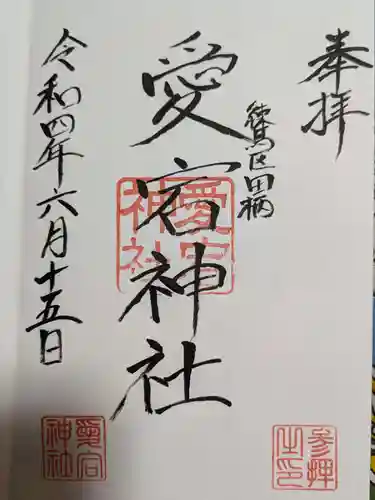 奉拝
練馬区田柄
愛宕神社
愛宕神社
令和四年六月十五日
参拝之印
愛宕神社